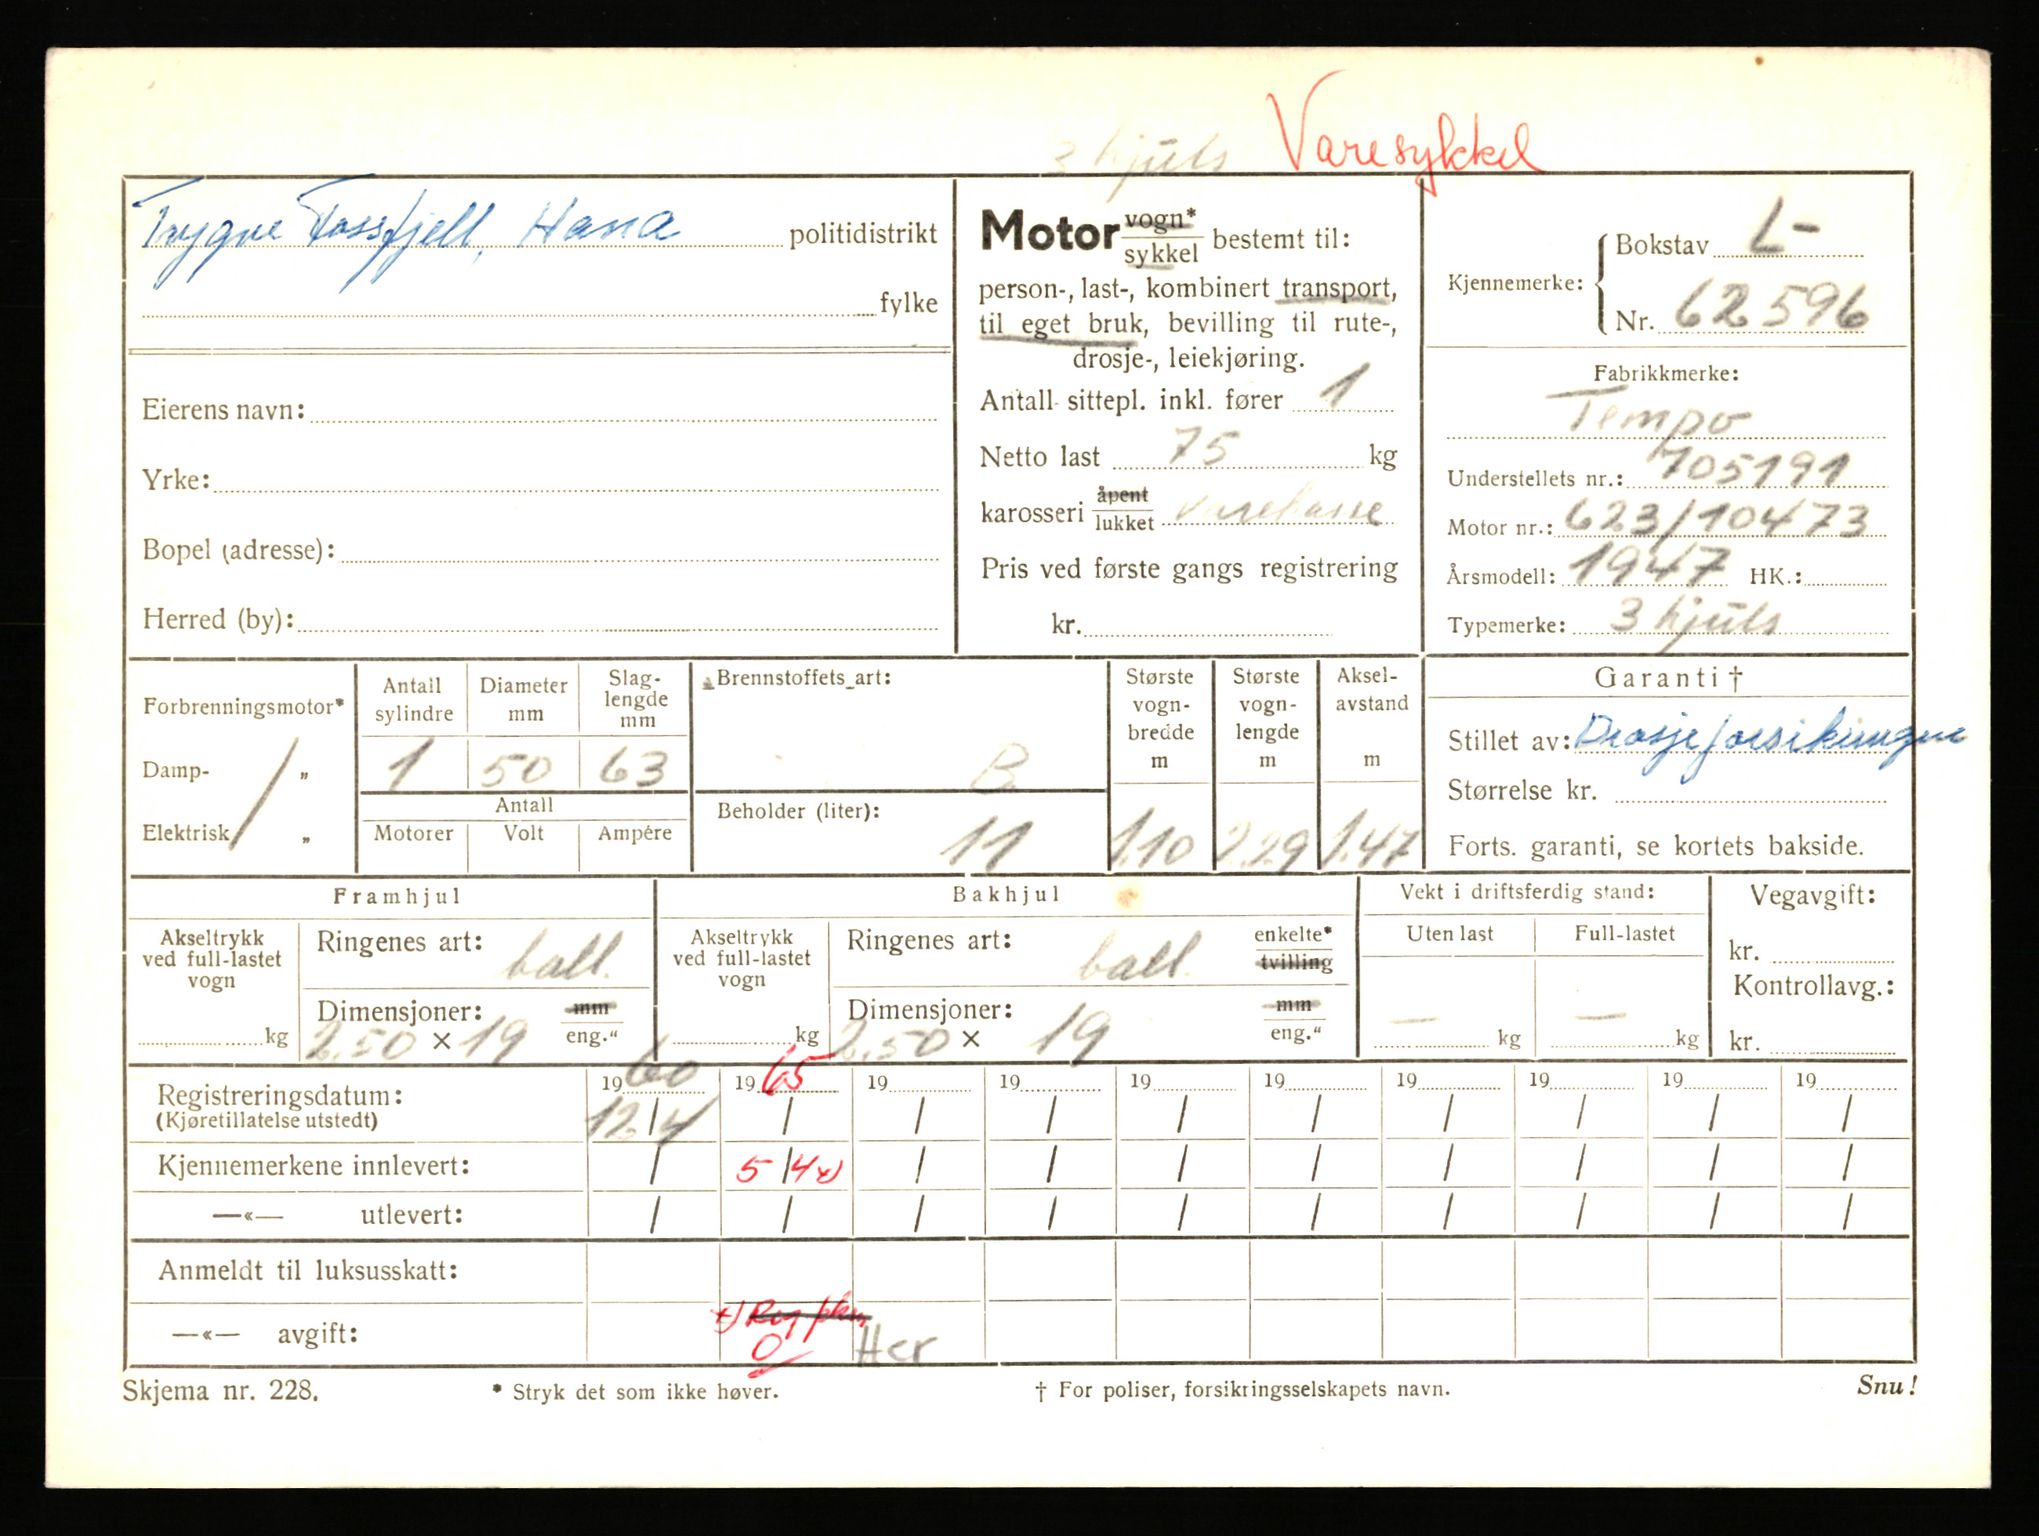 3 hjuls Varesykkel
Trygve Fossfjell, Hana politidistrikt
fylke
Eierens navn:
Yrke:
Bopel (adresse):
Herred (by):
Motor vogn* / sykkel bestemt til:
person-, last-, kombinert transport,
til eget bruk, bevilling til rute-,
drosje-, leiekjøring.
Antall sittepl. inkl. fører 1
Netto last 75 kg
karosseri åpent / lukket Varekasse
Pris ved første gangs registrering
kr.
Kjennemerke: { Bokstav L-
Nr. 62596
Fabrikkmerke:
Tempo
Understellets nr.: 705191
Motor nr.: 623/10473
Årsmodell: 1947 HK.:
Typemerke: 3 hjuls
Forbrenningsmotor*
Damp- „
Elektrisk „
Antall sylindre
1
Diameter mm
50
Slag-lengde mm
63
Antall
Motorer Volt Ampére
Brennstoffets art:
B.
Beholder (liter):
11
Største vogn-bredde m
1.10
Største vogn-lengde m
2.29
Aksel-avstand m
1.47
Garanti †
Stillet av: Drosjeforsikringen
Størrelse kr.
Forts. garanti, se kortets bakside.
Framhjul
Akseltrykk ved full-lastet vogn
kg
Ringenes art: ball.
Dimensjoner: mm / eng."
2.50 × 19
Bakhjul
Akseltrykk ved full-lastet vogn
kg
Ringenes art: ball. enkelte* / tvilling
Dimensjoner: mm / eng."
2.50 × 19
Vekt i driftsferdig stand:
Uten last Full-lastet
— kg — kg
Vegavgift:
kr.
Kontrollavg.:
kr.
1960 1965 19 19 19 19 19 19 19 19
Registreringsdatum: 12/4 / / / / / / / / /
(Kjøretillatelse utstedt)
Kjennemerkene innlevert: / 5/4 x) / / / / / / / /
—«— utlevert: / / / / / / / / / /
Anmeldt til luksusskatt:
—«— avgift:
x) Reg
O Her
Skjema nr. 228. * Stryk det som ikke høver. † For poliser, forsikringsselskapets navn. Snu!